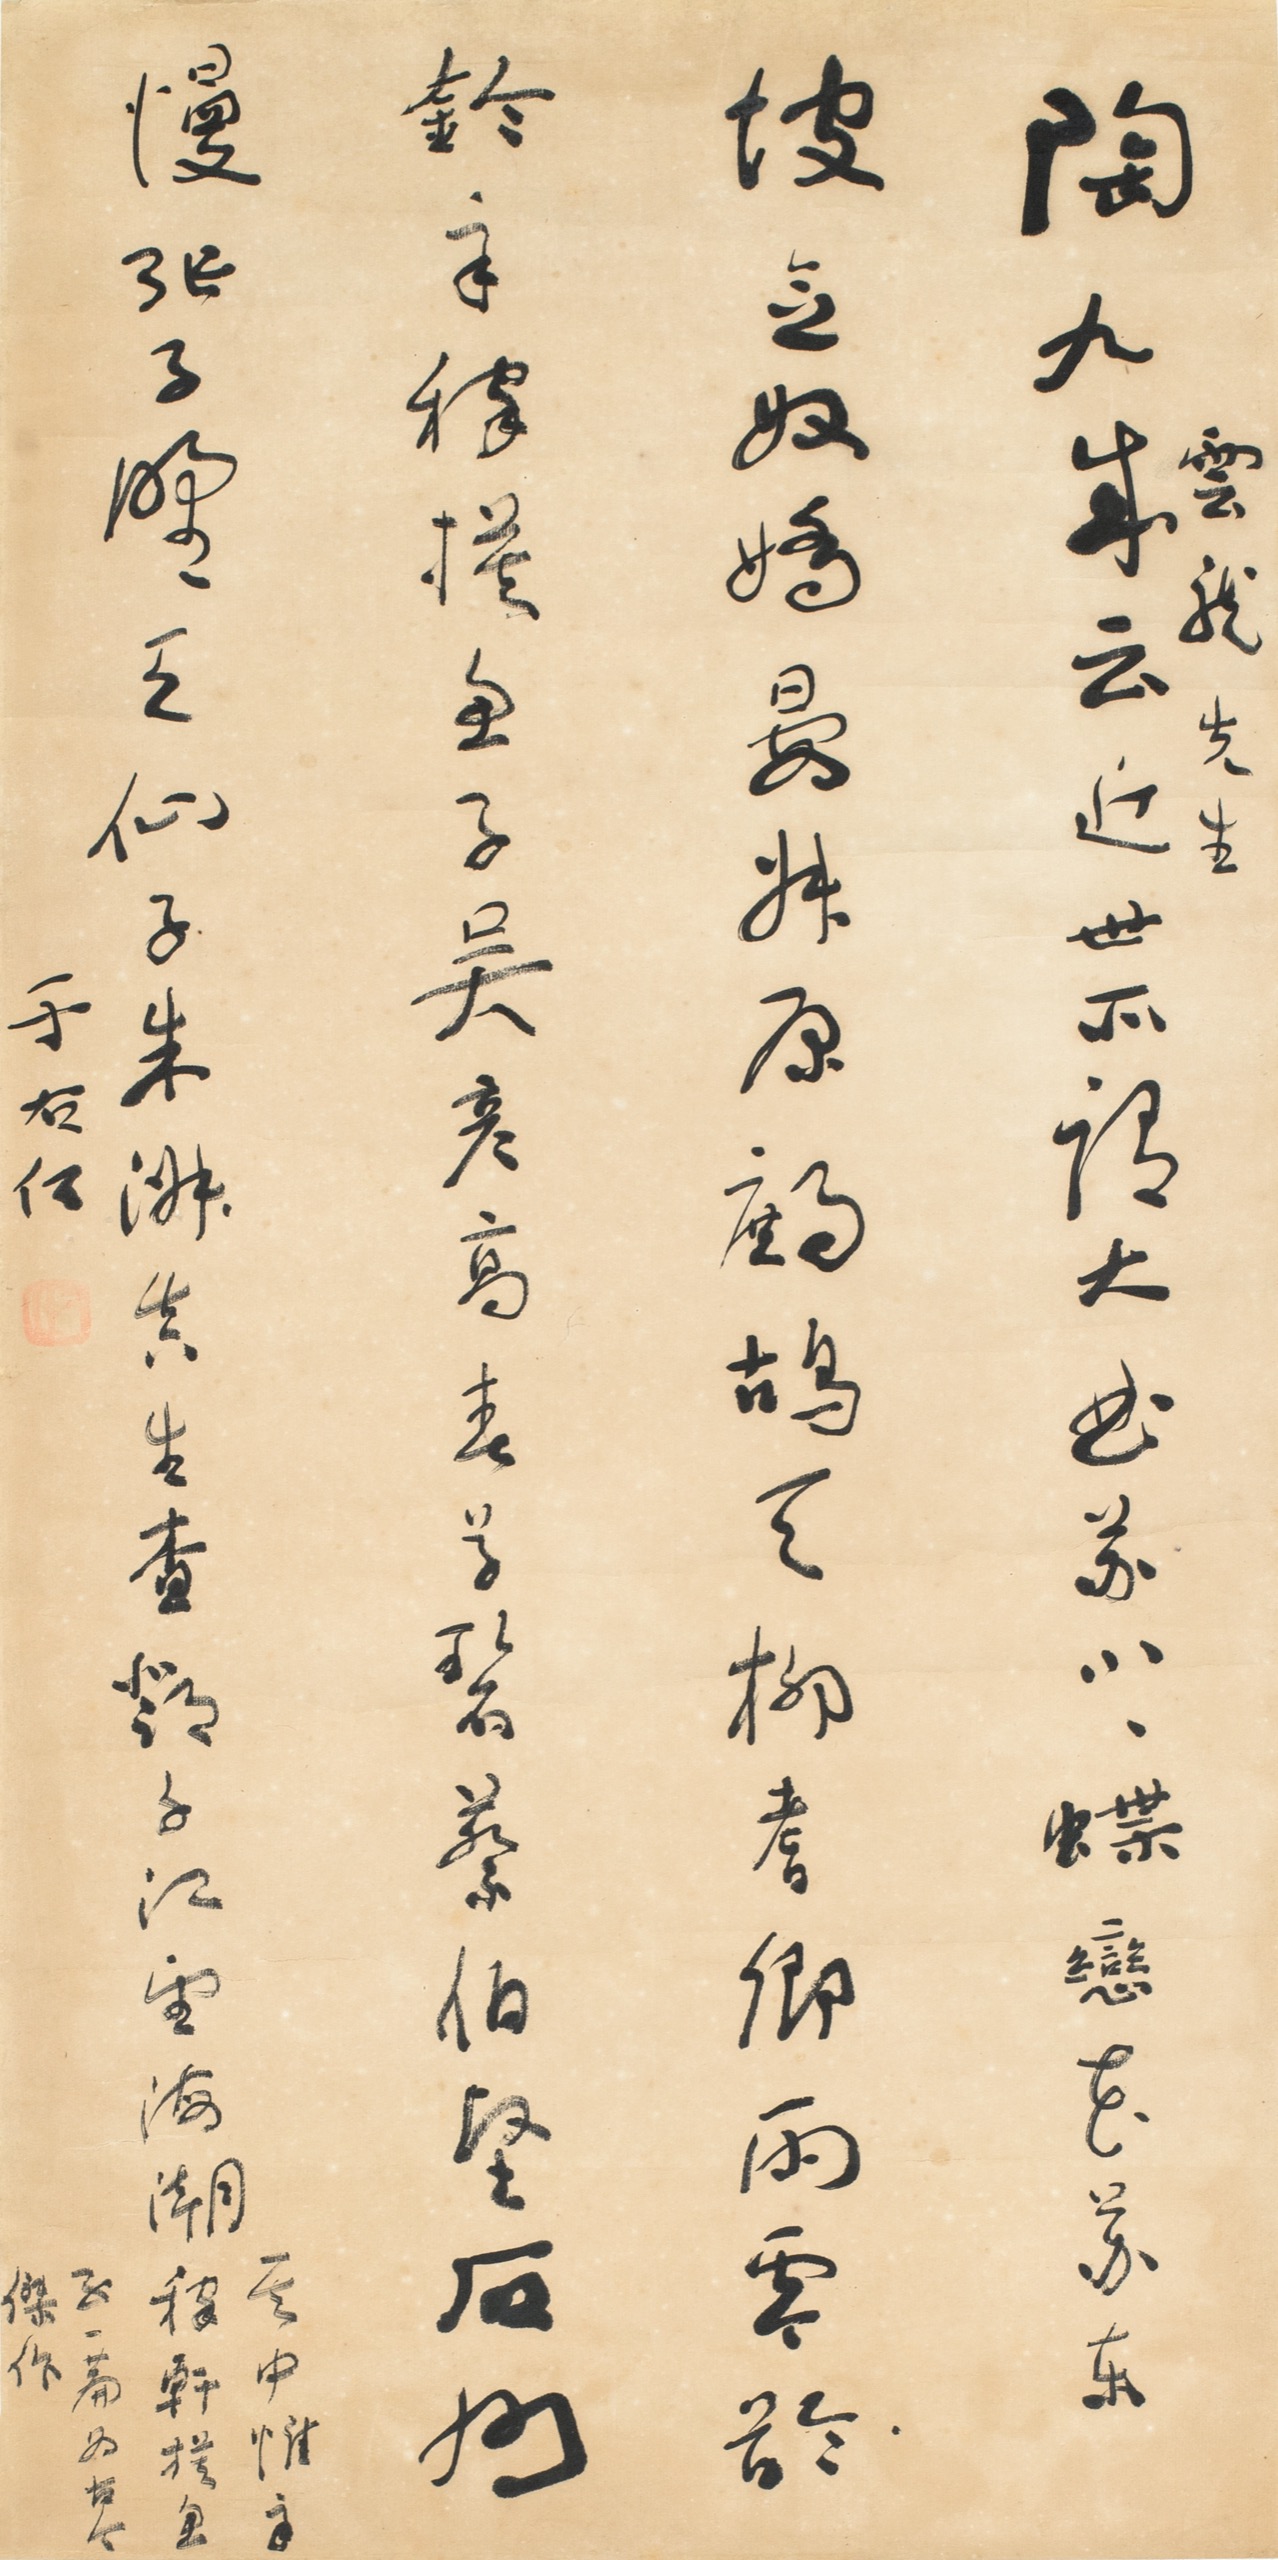 雲龍先生
陶九成云近世所謂大曲蘇小小蝶戀花蘇東
坡念奴嬌晏叔原鷓鴣天柳耆卿雨零齡
鈴辛稼摸魚子吳彥高春草碧蔡伯堅石州
慢張子野天仙子朱淑真生查鄧千江望海潮
其中惟辛
稼軒摸魚
子一篇為古今
傑作
于右任